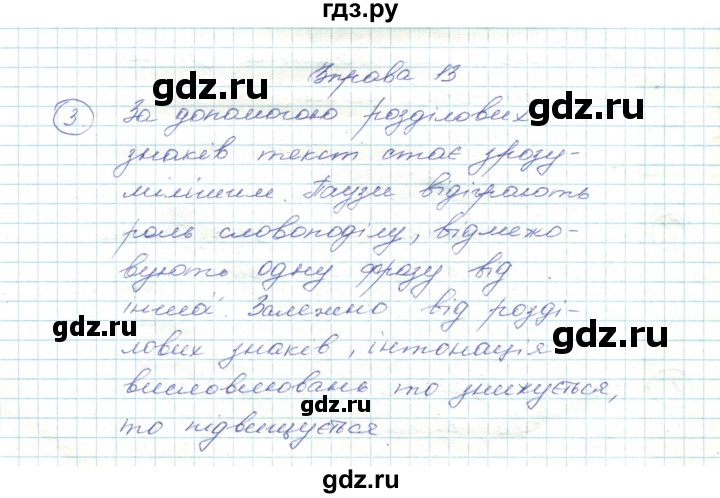 гдз.ру
Вправа 13
gdz.ru gdz.ru
3 За допомогою розділових
знаків текст стає зрозу-
мілішим. Паузи відіграють
gdz.ru
роль словоподілу, відмежо-
вують одну фразу від
gdz.ru gdz.ru
іншої. Залежно від розді-
gdz.ru
лових знаків, інтонація
висловлювань то знижується,
gdz.ru gdz.ru
то підвищується
gdz.ru